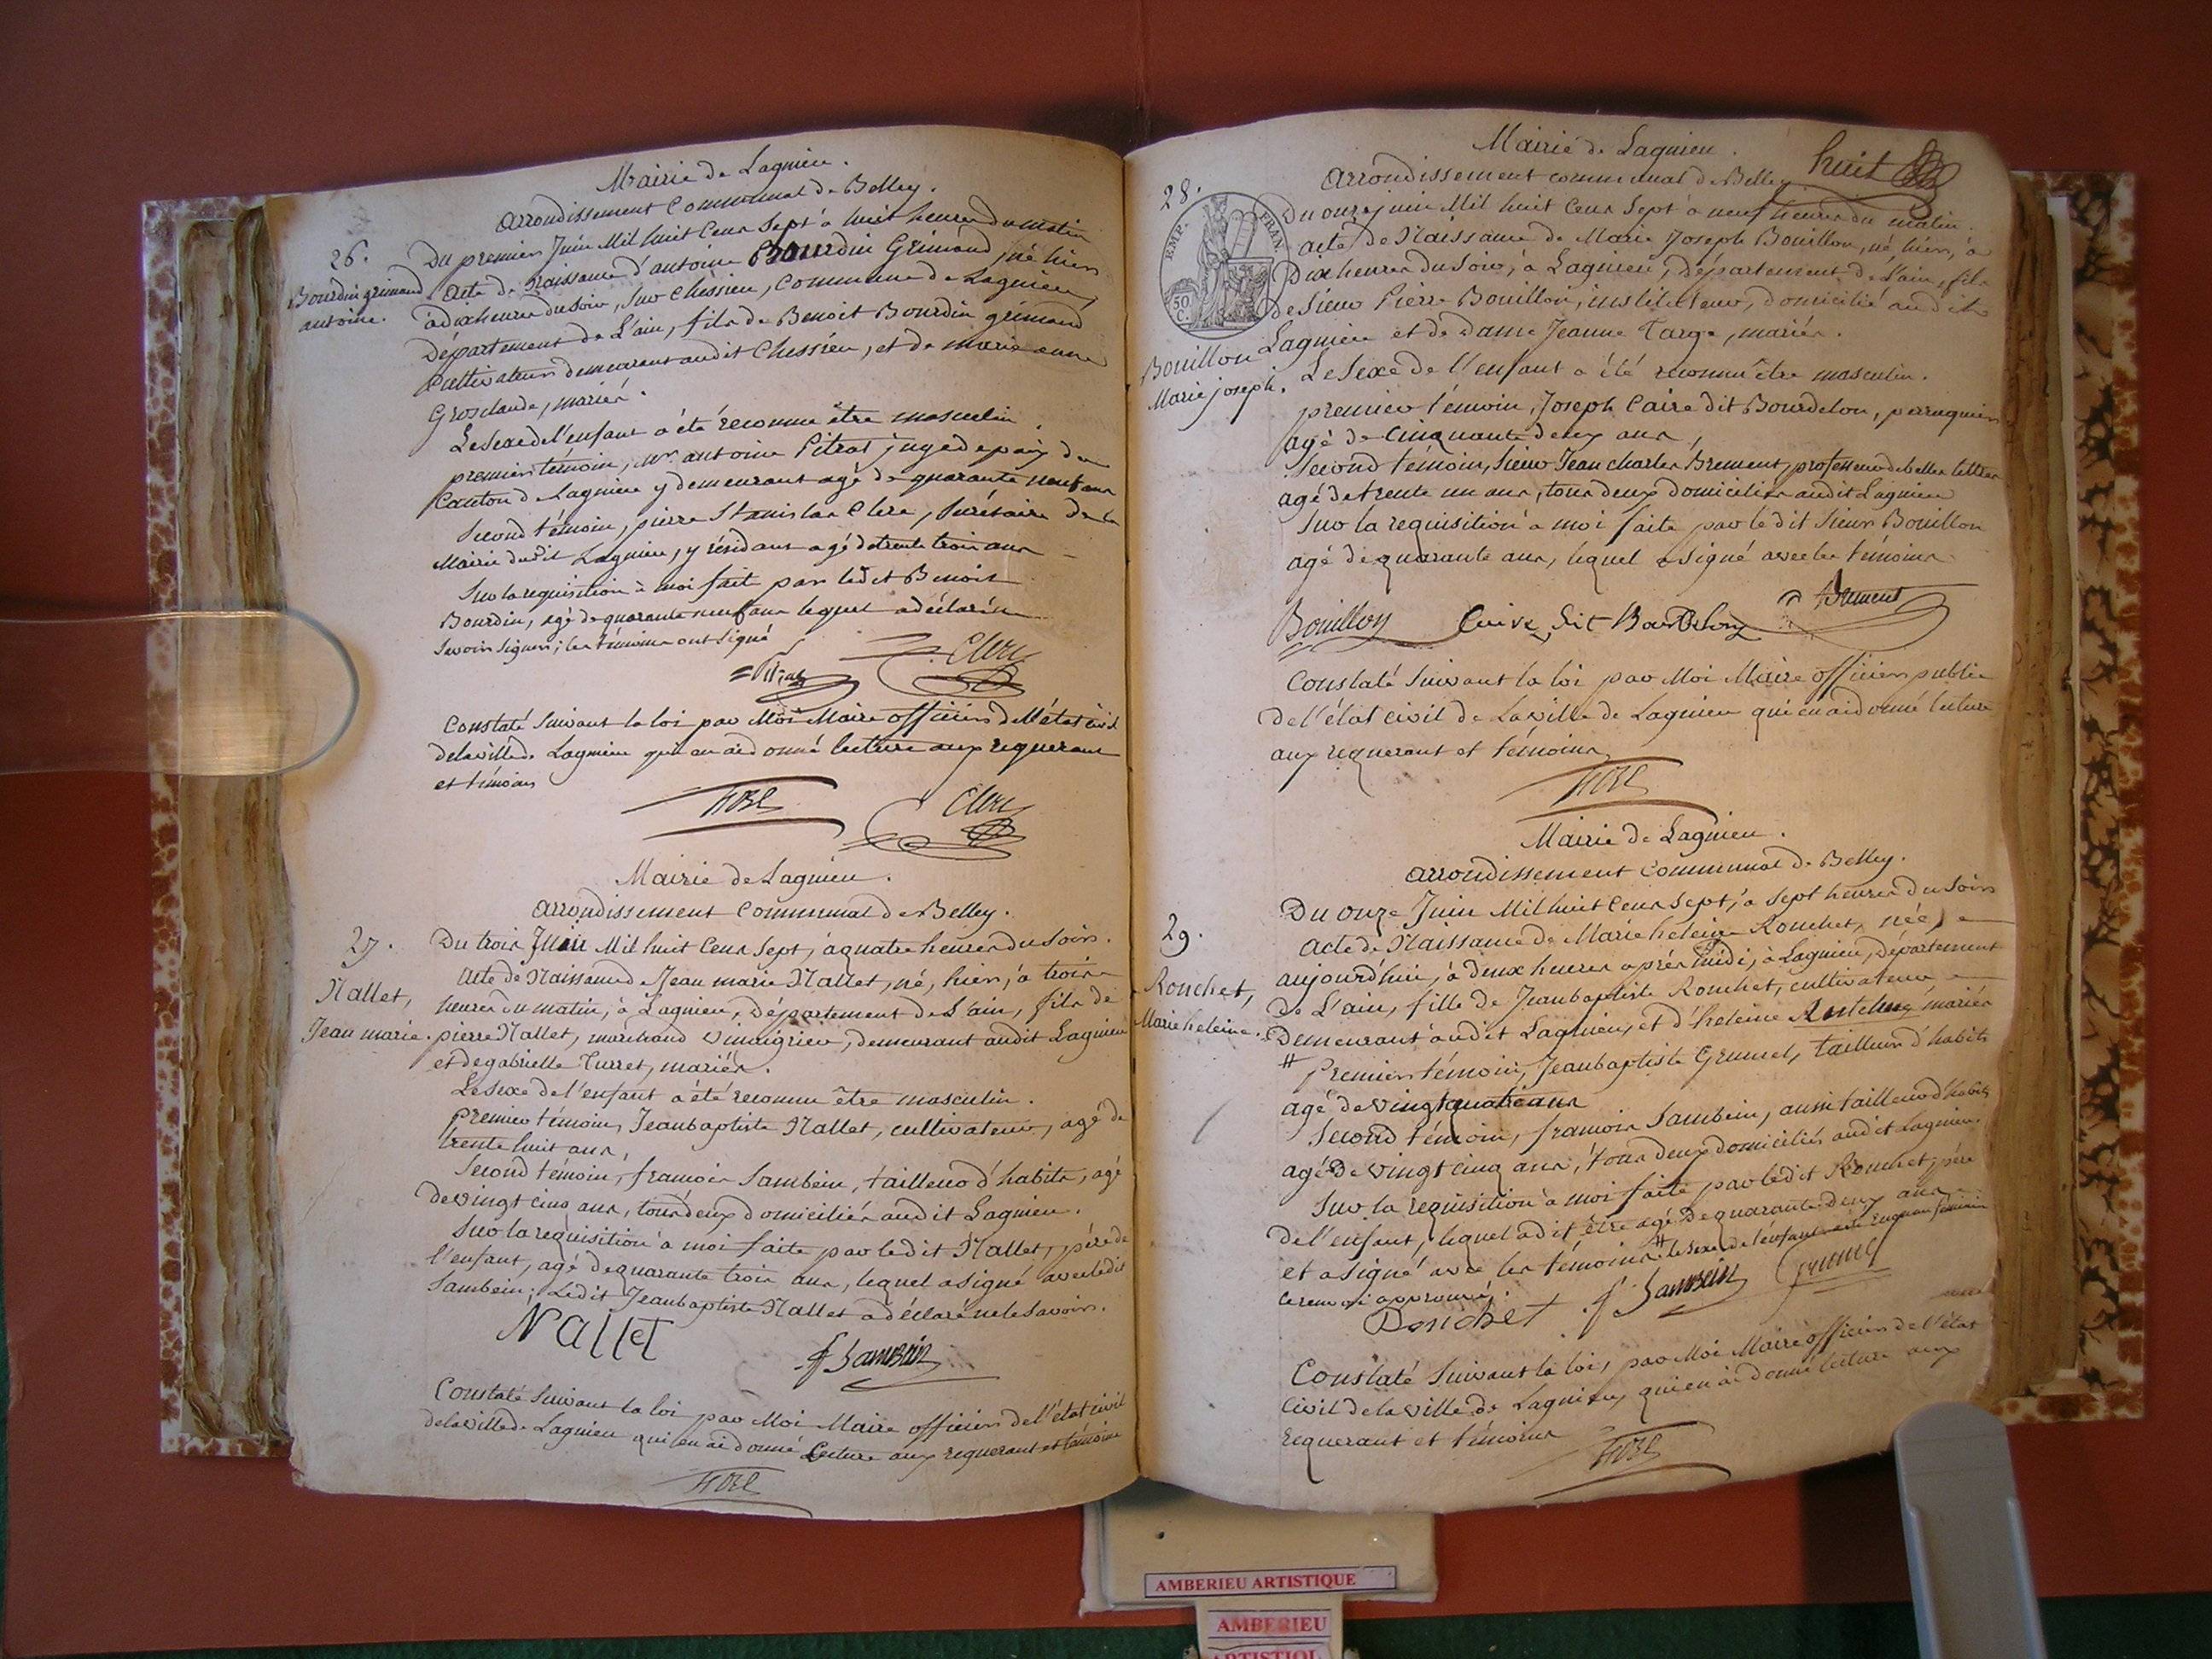 Mairie de Lagnieu.
Arrondissement Communal de Belley.
26.
Bourdin grimaud
antoine.
Du premier Juin Mil huit Cens Sept à huit heures du matin
Acte de Naissance d'antoine Bourdin Grimaud, né hier
à dix heures du soir, sur Chessieu, Commune de Lagnieu,
Département de L'ain, fils de Benoit Bourdin grimaud
Cultivateur demeurant audit Chessieu, et de marie anne
Grosclaude, mariés.
Le Sexe de l'enfant a été reconnu être masculin.
premier témoin, Mr. antoine Pitrat juge de paix du
Canton de Lagnieu y demeurant agé de quarante neuf ans
Second témoin, pierre Stanislas Clerc, Sécrétaire de la
Mairie dudit Lagnieu, y résidant agé de trente trois ans
Sur la requisition à moi fait par ledit Benoit
Bourdin, agé de quarante neuf ans lequel a déclaré ne
Savoir Signer; les témoins ont Signé
Pitrat Clerc
Constaté Suivant la loi par Moi Maire officier de l'état civil
de la ville de Lagnieu qui en ai donné lecture aux requerant
et témoins
Clerc
Mairie de Lagnieu.
Arrondissement Communal de Belley.
27.
Nallet,
Jean marie.
Du trois Juin Mil huit Cens Sept, à quatre heures du Soir.
Acte de Naissance de Jean marie Nallet, né, hier, à trois
heures du matin, à Lagnieu, Département de L'ain, fils de
pierre Nallet, marchand Vinaigrier, demeurant audit Lagnieu
et de gabrielle Turret, mariés.
Le Sexe de l'enfant a été reconnu être masculin.
Premier témoin, Jeanbaptiste Nallet, cultivateur, agé de
trente huit ans,
Second témoin, françois Sambein, tailleur d'habits, agé
de vingt cinq ans, tous deux domiciliés audit Lagnieu.
Sur la requisition à moi faite par ledit Nallet, père de
l'enfant, agé de quarante trois ans, lequel a signé avec ledit
Sambein; Ledit Jeanbaptiste Nallet a déclaré ne le Savoir.
Nallet f Sambein
Constaté Suivant la loi par Moi Maire officier de l'état civil
de la ville de Lagnieu qui en ai donné Lecture aux requerant et témoins
huit
Mairie de Lagnieu.
Arrondissement communal de Belley.
28.
EMP. FRAN.
50 C.
Bouillon
Marie joseph.
Du onze juin Mil huit Cens Sept à neuf heures du matin.
acte de Naissance de Marie Joseph Bouillon, né, hier, à
Dix heures du Soir, à Lagnieu, Département de L'ain, fils
de Sieur Pierre Bouillon, instituteur, domicilié audit
Lagnieu et de Dame Jeanne Targe, mariés.
Le Sexe de l'enfant a été reconnu être masculin.
premier témoin, Joseph Caire dit Bourdelon, perruquier
agé de Cinquante deux ans,
Second témoin, Sieur Jean charles Brement, professeur de belles lettres
agé de trente un ans, tous deux domiciliés audit Lagnieu
Sur la requisition à moi faite par le dit Sieur Bouillon
agé de quarante ans, lequel a Signé avec les témoins
Bouillon Caire dit Bourdelon Brement
Constaté Suivant la loi par Moi Maire officier public
de l'état civil de La ville de Lagnieu qui en ai donné lecture
aux requerant et témoins
Mairie de Lagnieu.
Arrondissement Communal de Belley.
29.
Ronchet,
Marie heleine.
Du onze Juin Mil huit Cens Sept, à sept heures du Soir
Acte de Naissance de Marie heleine Ronchet, née,
aujourd'hui, à deux heures après midi, à Lagnieu, Département
de L'ain, fille de Jeanbaptiste Ronchet, cultivateur
Demeurant audit Lagnieu, et d'heleine mariés
# Premier témoin, Jeanbaptiste tailleur d'habits
agé de vingt quatre ans
Second témoin, françois Sambein, aussi tailleur d'habits
agé de vingt cinq ans, tous deux domiciliés audit Lagnieu.
Sur la requisition à moi faite par ledit Ronchet, père
de l'enfant, lequel a dit être agé de quarante deux ans
et a signé avec les témoins # le sexe de l'enfant féminin
le renvoi approuvé.
Ronchet f Sambein
Constaté Suivant la loi, par Moi Maire officier de l'état
civil de la ville de Lagnieu, qui en ai donné lecture aux
requerant et témoins
AMBERIEU ARTISTIQUE
AMBERIEU